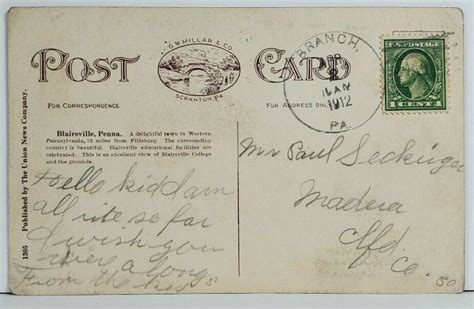 POST CARD
G. V. MILLAR & CO.
SCRANTON, PA.
FOR CORRESPONDENCE
FOR ADDRESS ON
BRANCH,
8
1912
PA.
U.S. POSTAGE
1 CENT 1
Blairsville, Penna. A delightful town in Western
Pennsylvania, 53 miles from Pittsburg. The surrounding
country is beautiful. Blairsville educational facilities are
celebrated. This is an excellent view of Blairsville College
and the grounds.
1505 Published by The Union News Company.
Hello kid I am
all rite so far
I wish you
were a long
From the kid
Mr Paul Seckinger
Madera
Clfd.
Co.
50